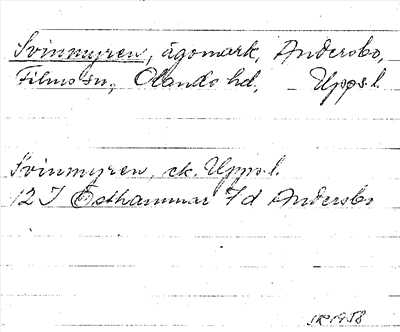 Svinmyren, ägomark, Andersbo,
Films sn, Olands hd, Upps.l.
Svinmyren, ek. Upps.l.
12 I Östhammar 7d Andersbo
1958